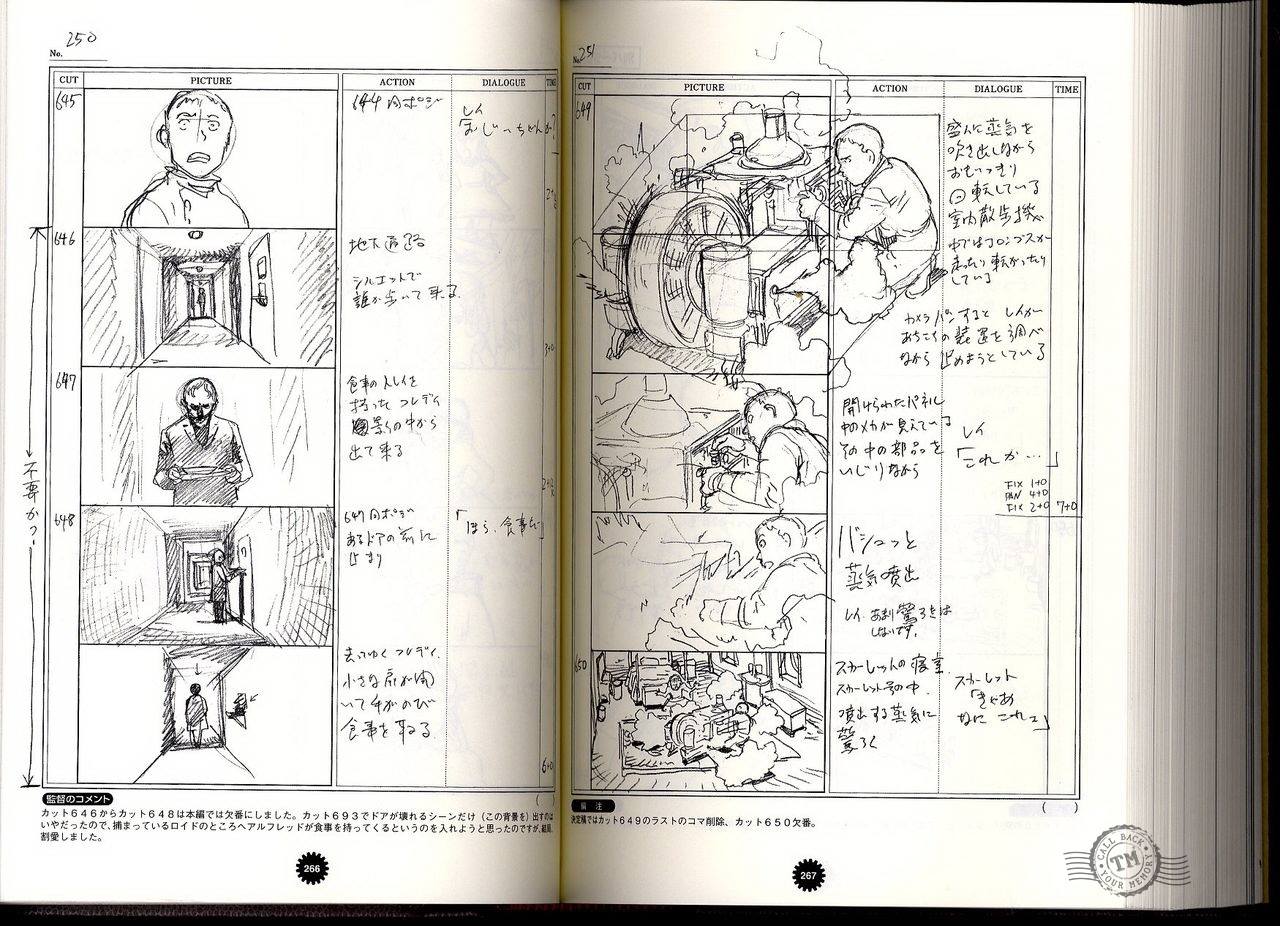 No. 250
CUT PICTURE ACTION DIALOGUE TIME
645
644 同ポジ
レイ
「おじいちゃんが?
646
地下通路
シルエットで
誰か歩いて来る
3+0
647
食事のトレイを
持った フレディ
影の中から
出て来る
648
647 同ポジ
あるドアの前に
止まり
「ほら、食事だ」
去ってゆくフレディ
小さな扉が開
いて手がのび
食事を取る
6+0
不要かっ!
( )
監督のコメント
カット646からカット648は本編では欠番にしました。カット693でドアが壊れるシーンだけ(この背景を)出すのは
いやだったので、捕まっているロイドのところへアルフレッドが食事を持ってくるというのを入れようと思ったのですが、結局、
割愛しました。
266
No. 251
CUT PICTURE ACTION DIALOGUE TIME
649
盛んに蒸気を
吹き出しながら
おもいっきり
回転している
室内散歩機
中ではコロンブスが
走ったり転がったり
している
カメラパンすると レイが
あちこちの装置を調べ
ながら 止めようとしている
開けられたパネル
中のメカが見えている
その中の部品を
いじりながら
レイ
「これか…」
FIX 1+0
PAN 4+0
FIX 2+0 7+0
バシュっと
蒸気噴出
レイ あまり驚ろきは
しないす。
650
スカーレットの寝室
スカーレットその中、
噴出する蒸気に
驚ろく
スカーレット
「きゃあ
なに これェ」
( )
備 注
決定稿ではカット649のラストのコマ削除、カット650欠番。
267
CALL BACK
TM
YOUR MEMORY